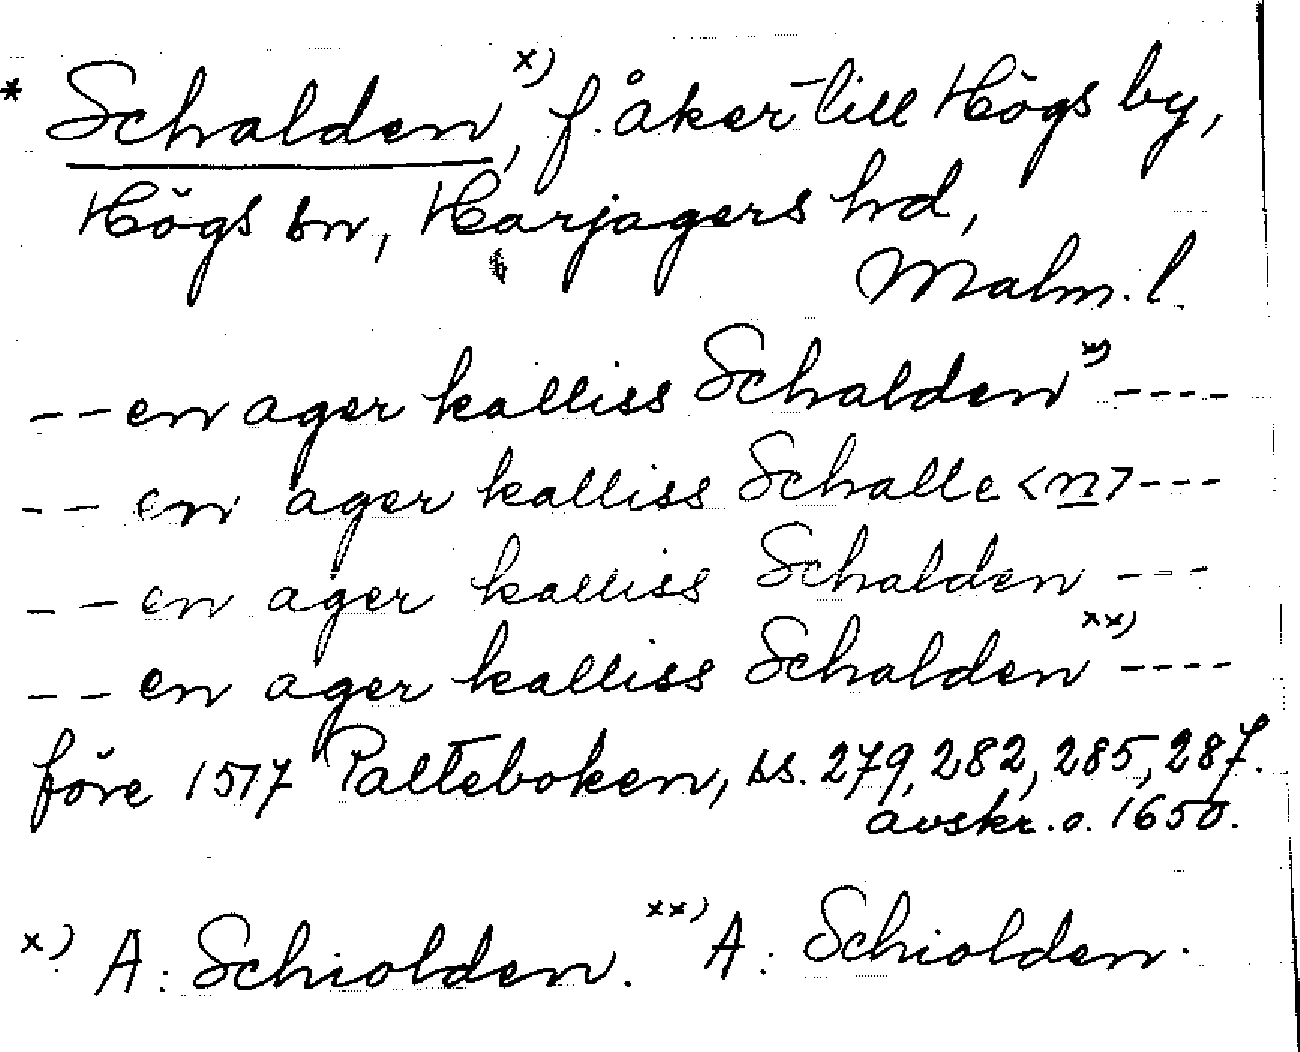 * Schalden,ˣ⁾ f. åker till Högs by,
Högs sn, Harjagers hd,
Malm. l.
-- en ager kalliss Schaldenˣ⁾ ----
-- en ager kalliss Schalle<n> ---
-- en ager kalliss Schalden ---
-- en ager kalliss Schaldenˣˣ⁾ ----
före 1517 Palteboken, ss. 279, 282, 285, 287.
avskr. o. 1650.
x) A: Schiolden. xx) A: Schiolden.